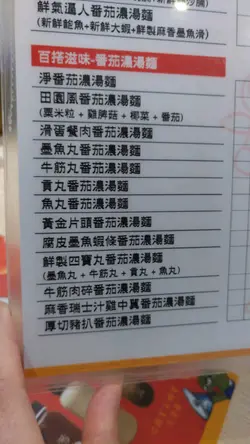 鮮氣逼人番茄濃湯麵
(新鮮鮑魚+新鮮大蝦+鮮製麻香墨魚滑)
百搭滋味-番茄濃湯麵
淨番茄濃湯麵
田園風番茄濃湯麵
(粟米粒 + 雞脾菇 + 椰菜 + 番茄)
滑蛋餐肉番茄濃湯麵
墨魚丸番茄濃湯麵
牛筋丸番茄濃湯麵
貢丸番茄濃湯麵
魚丸番茄濃湯麵
黃金片頭番茄濃湯麵
腐皮墨魚蝦條番茄濃湯麵
鮮製四寶丸番茄濃湯麵
(墨魚丸 + 牛筋丸 + 貢丸 + 魚丸)
牛筋肉碎番茄濃湯麵
麻香瑞士汁雞中翼番茄濃湯麵
厚切豬扒番茄濃湯麵